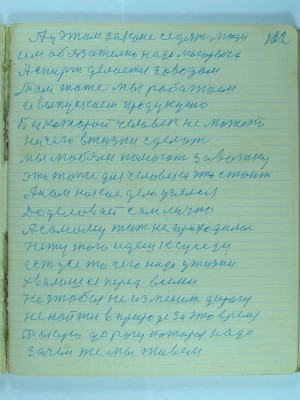 102
А у этом законе сидят люди
им обязателно надо могорыча
А спирт делается заводом
Там тоже мы работаем
и выпускаем продукцию
Без которой человек не может
ничего в жизни сделат
мы любим помогат заводику
это тоже для человека что стоит
А нам какое дело узялся
Доделовает сам лично
А самому пит не приходился
Нету того идеи к суседу
ест усе то чего надо у жизни
хвалился перед всеми
Но чтобы не изменит дорогу
не найти в природе за это время
Такую дорогу которая надо
зачем же мы живем